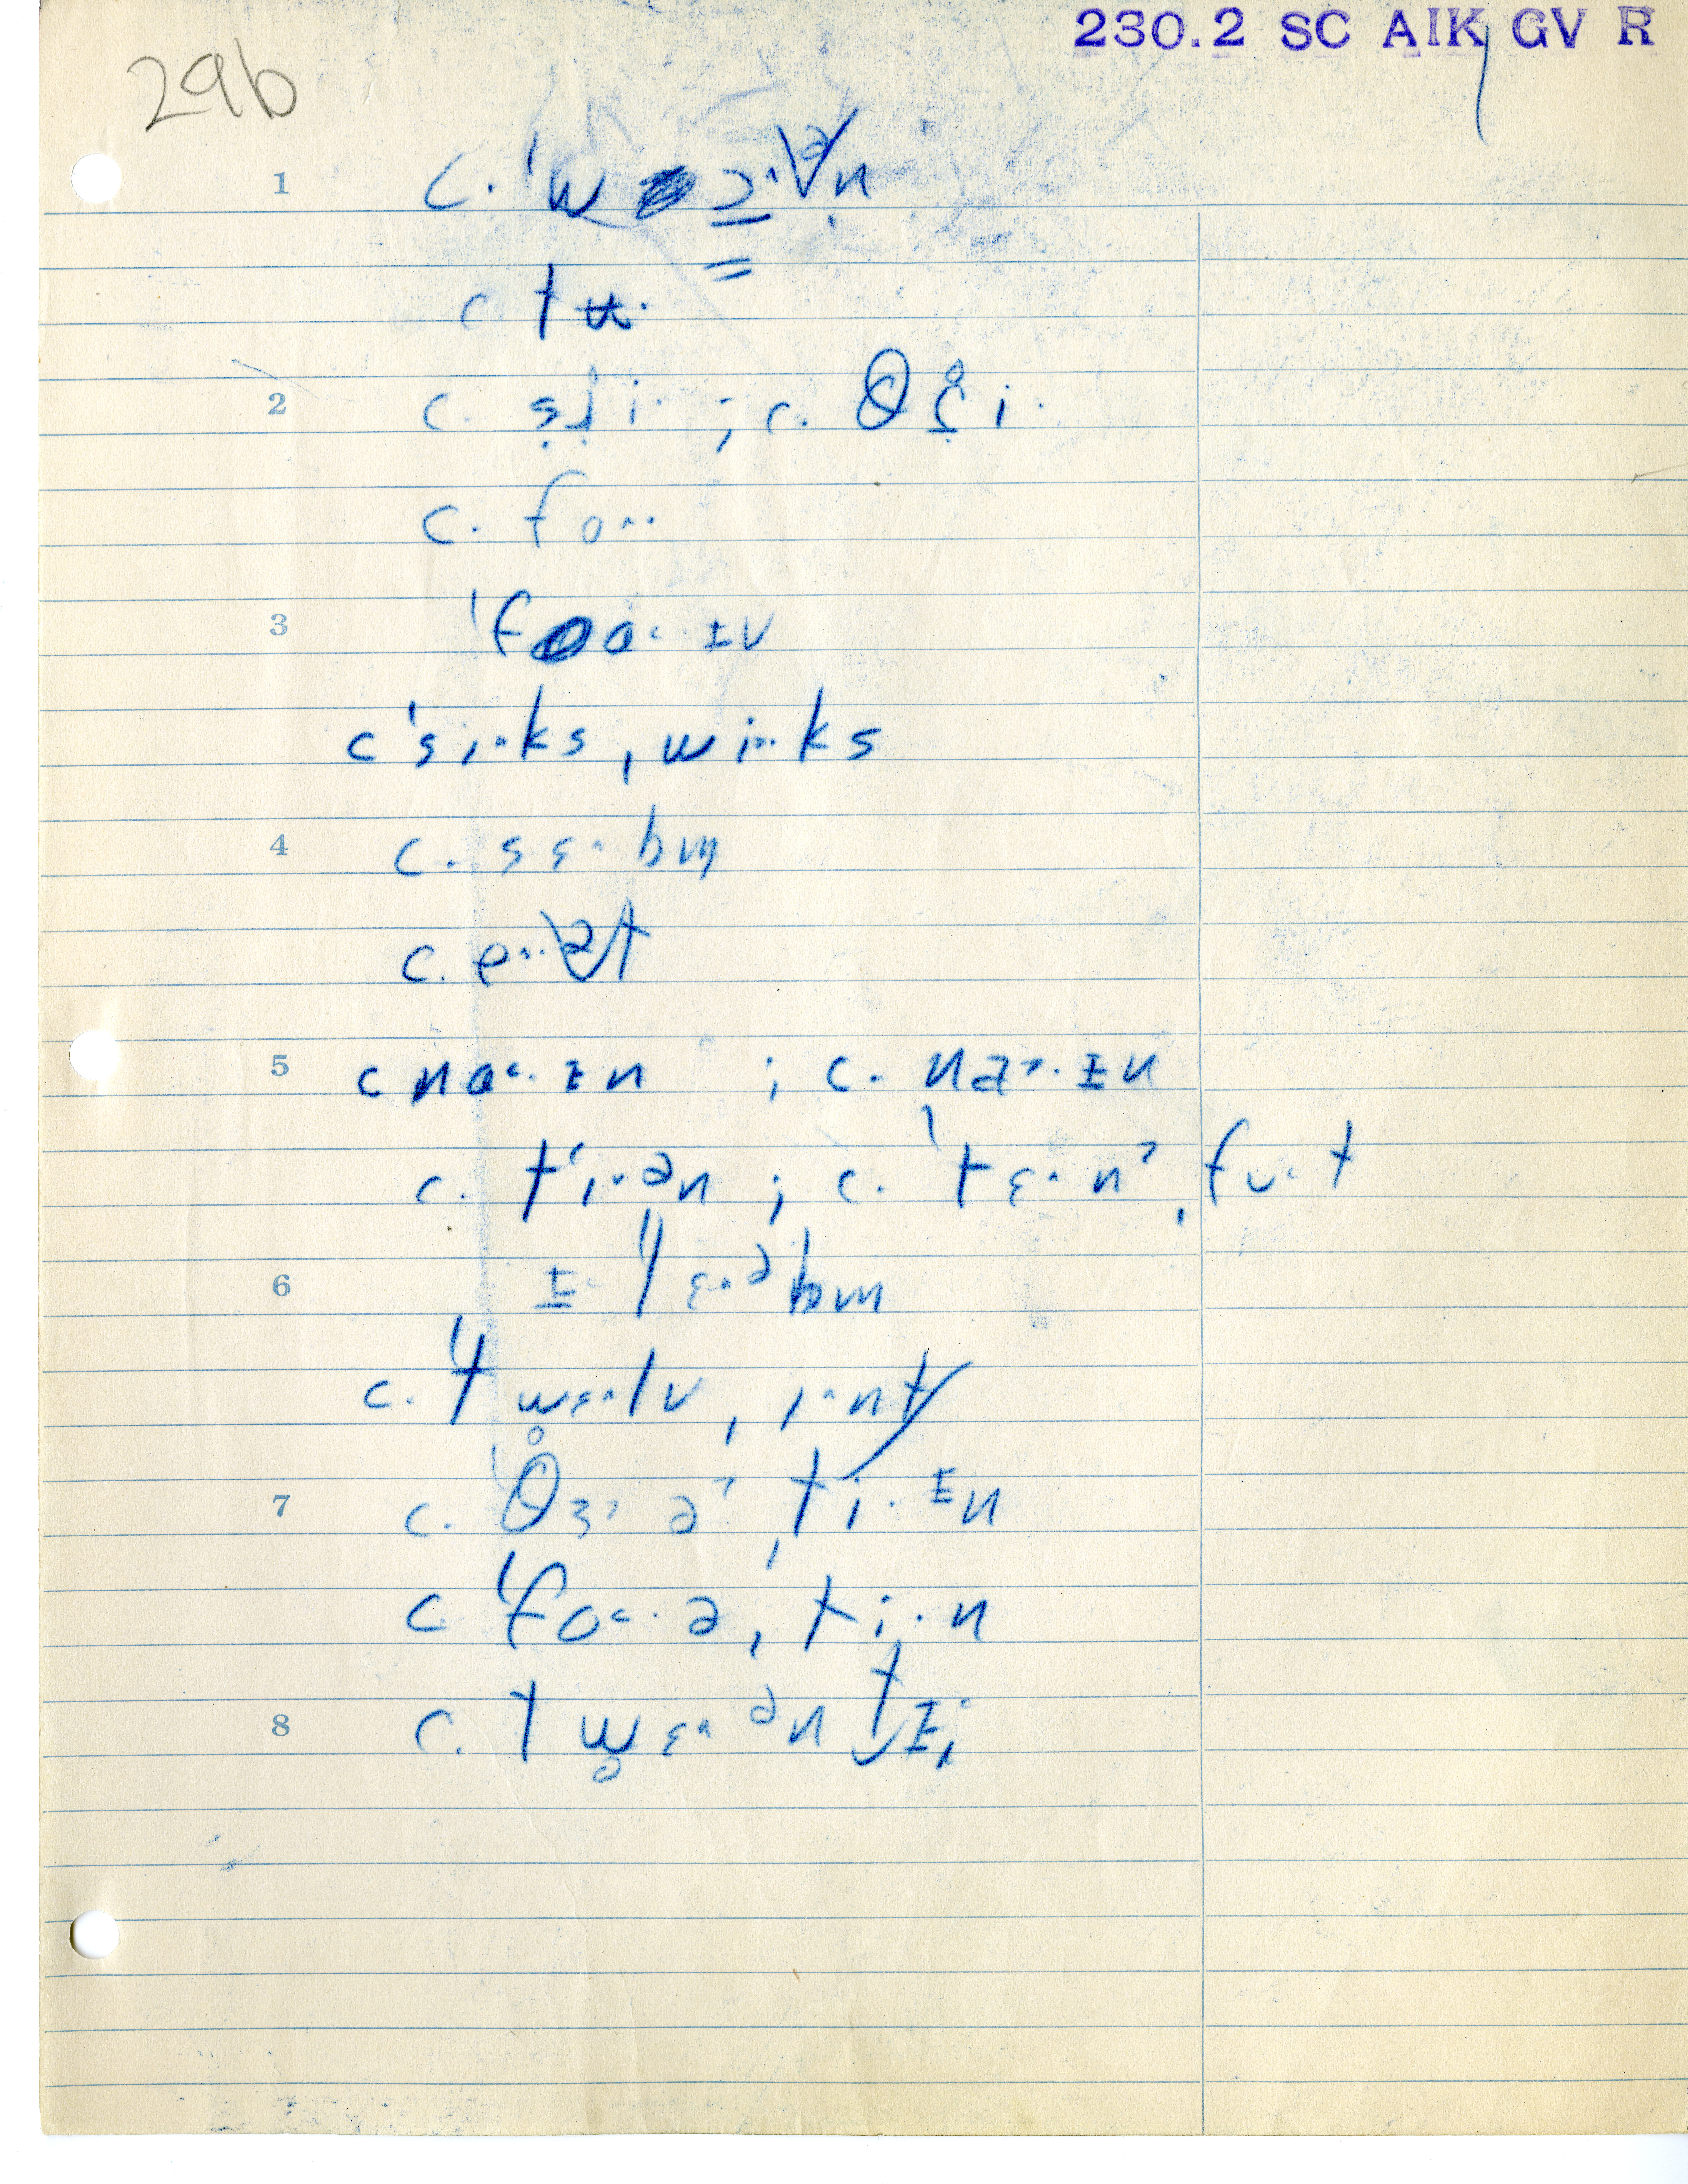 230.2 SC AIK GV R
29b
1 c. ˈw ɔ˄ə̆n
c. tʉ·
2 c. sɹ̥i· ; c. θɹ̥i·
c. fo˄·
3 ˈfo˂·ɪv
cˈsi˄ks, wi˄·ks
4 c. sɛ˄bm
c. e˄·ə̆t
5 c na˂·ɪn ; c. na˃·ɪn
c. tʻi˄·ən ; c. ˈtɛ˄n˃ˌfʊ·t
6 ɪ·ˈlɛ˄əbm
c. ˈtw̥ɛ˄lv, i˄nt
7 c. ˈθɜ˃ə˃ˌti·ɪn
c ˈfo˂·əˌti·n
8 c. tw̥ɛ˄ənt̬ɪi